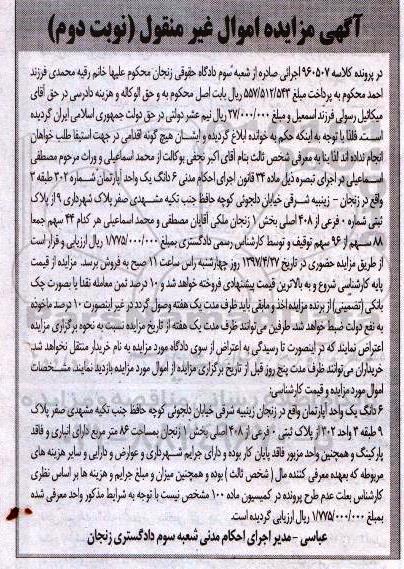 آگهی مزایده اموال غیر منقول (نوبت دوم)
در پرونده کلاسه ۹۶۰۵۰۷ اجرائی صادره از شعبه سوم دادگاه حقوقی زنجان محکوم علیها خانم رقیه محمدی فرزند
احمد محکوم به پرداخت مبلغ ۵۵۷/۵۱۲/۵۴۳ ریال بابت اصل محکوم به و حق الوکاله و هزینه دادرسی در حق آقای
میکائیل رسولی فرزند اسمعیل و مبلغ ۲۷/۰۰۰/۰۰۰ ریال نیم عشر دولتی در حق دولت جمهوری اسلامی ایران گردیده
است. فلذا با توجه به اینکه حکم به خوانده ابلاغ گردیده و ایشان هیچ گونه اقدامی در جهت استیفا طلب خواهان
انجام نداده اند لذا بنا به معرفی شخص ثالث بنام آقای اکبر نجفی بوکالت از محمد اسماعیلی و وراث مرحوم مصطفی
اسماعیلی در اجرای تبصره ذیل ماده ۳۴ قانون اجرای احکام مدنی ۶ دانگ یک واحد آپارتمان شماره ۳۰۲ طبقه ۳
واقع در زنجان – زینبیه شرقی خیابان دلجوئی کوچه حافظ جنب تکیه مشهدی صفر پلاک شهرداری ۹ از پلاک
ثبتی شماره ۰ فرعی از ۴۰۸ اصلی بخش ۱ زنجان ملکی آقایان مصطفی و محمد اسماعیلی هر کدام ۴۴ سهم جمعا
۸۸ سهم از ۹۶ سهم توقیف و توسط کارشناس رسمی دادگستری بمبلغ ۱/۷۷۵/۰۰۰/۰۰۰ ریال ارزیابی و قرار است
از طریق مزایده حضوری در تاریخ ۱۳۹۷/۴/۲۷ روز چهارشنبه راس ساعت ۱۱ صبح به فروش برسد. مزایده از قیمت
پایه کارشناسی شروع و به بالاترین قیمت پیشنهادی فروخته خواهد شد و ۱۰ درصد ثمن معامله نقدا یا بصورت چک
بانکی (تضمینی) از برنده مزایده اخذ و مابقی باید ظرف مدت یک هفته وصول گردد در غیر اینصورت ۱۰ درصد ماخوذه
به نفع دولت ضبط خواهد شد. طرفین می‌توانند ظرف مدت یک هفته از تاریخ مزایده نسبت به نحوه برگزاری مزایده
اعتراض نمایند که در اینصورت تا رسیدگی به اعتراض از سوی دادگاه مورد مزایده به نام خریدار منتقل نخواهد شد.
خریداران می‌توانند ظرف مدت پنج روز قبل از تاریخ برگزاری مزایده از اموال مورد مزایده بازدید نمایند. مشخصات
اموال مورد مزایده و قیمت کارشناسی:
۶ دانگ یک واحد آپارتمان واقع در زنجان زینبیه شرقی خیابان دلجوئی کوچه حافظ جنب تکیه مشهدی صفر پلاک
۹ طبقه ۳ واحد ۳۰۲ از پلاک ثبتی ۰ فرعی از ۴۰۸ اصلی بخش ۱ زنجان بمساحت ۸۶ متر مربع دارای انباری و فاقد
پارکینگ و همچنین واحد مزبور فاقد پایان کار بوده و دارای جرایم شهرداری و عوارض و دارایی و سایر هزینه های
مربوطه که بعهده معرفی کننده مال ( شخص ثالث ) بوده و همچنین میزان و مبلغ جرایم و هزینه ها بر اساس نظری
کارشناس بعلت عدم طرح پرونده در کمیسیون ماده ۱۰۰ مشخص نیست با توجه به شرایط مذکور واحد معرفی شده
بمبلغ ۱/۷۷۵/۰۰۰/۰۰۰ ریال ارزیابی گردیده است.
عباسی – مدیر اجرای احکام مدنی شعبه سوم دادگستری زنجان